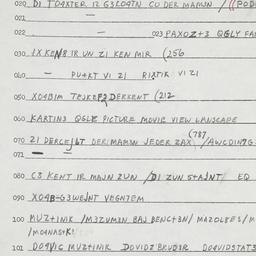 020 DI TOAXTER IZ G3LOATN CU DER MAMUN / ((POD
021 —
022 — 023 PAXOZ+3 QGLY FA
030 IX KEN8 IR UN ZI KEN MIR (256
040 — PU+KT VI ZI RIKTIK VI ZI
050 XO4BIM TEJKEFZ DERKENT (212
060 KARTIN3 QGLE PICTURE MOVIE VIEW LANSCAPE
070 ZI DERCEILT DER(MAMUN JEDER ZAX (787, /AWCDIN7G
071 —
080 C3 KENT IR MAJN ZUN /DI ZUN S+AJNT/ EQ
090 XO4B-G3WEJNT VEGN7EM
100 MUZ+INIK /M3ZUM3N BAJ DENC+3N/ MAZOLFES/M
/MO4NAS+K!
101 DO4VIG MUZ+INIK DOVIDZ BRUDIR DO4VIDSTATS